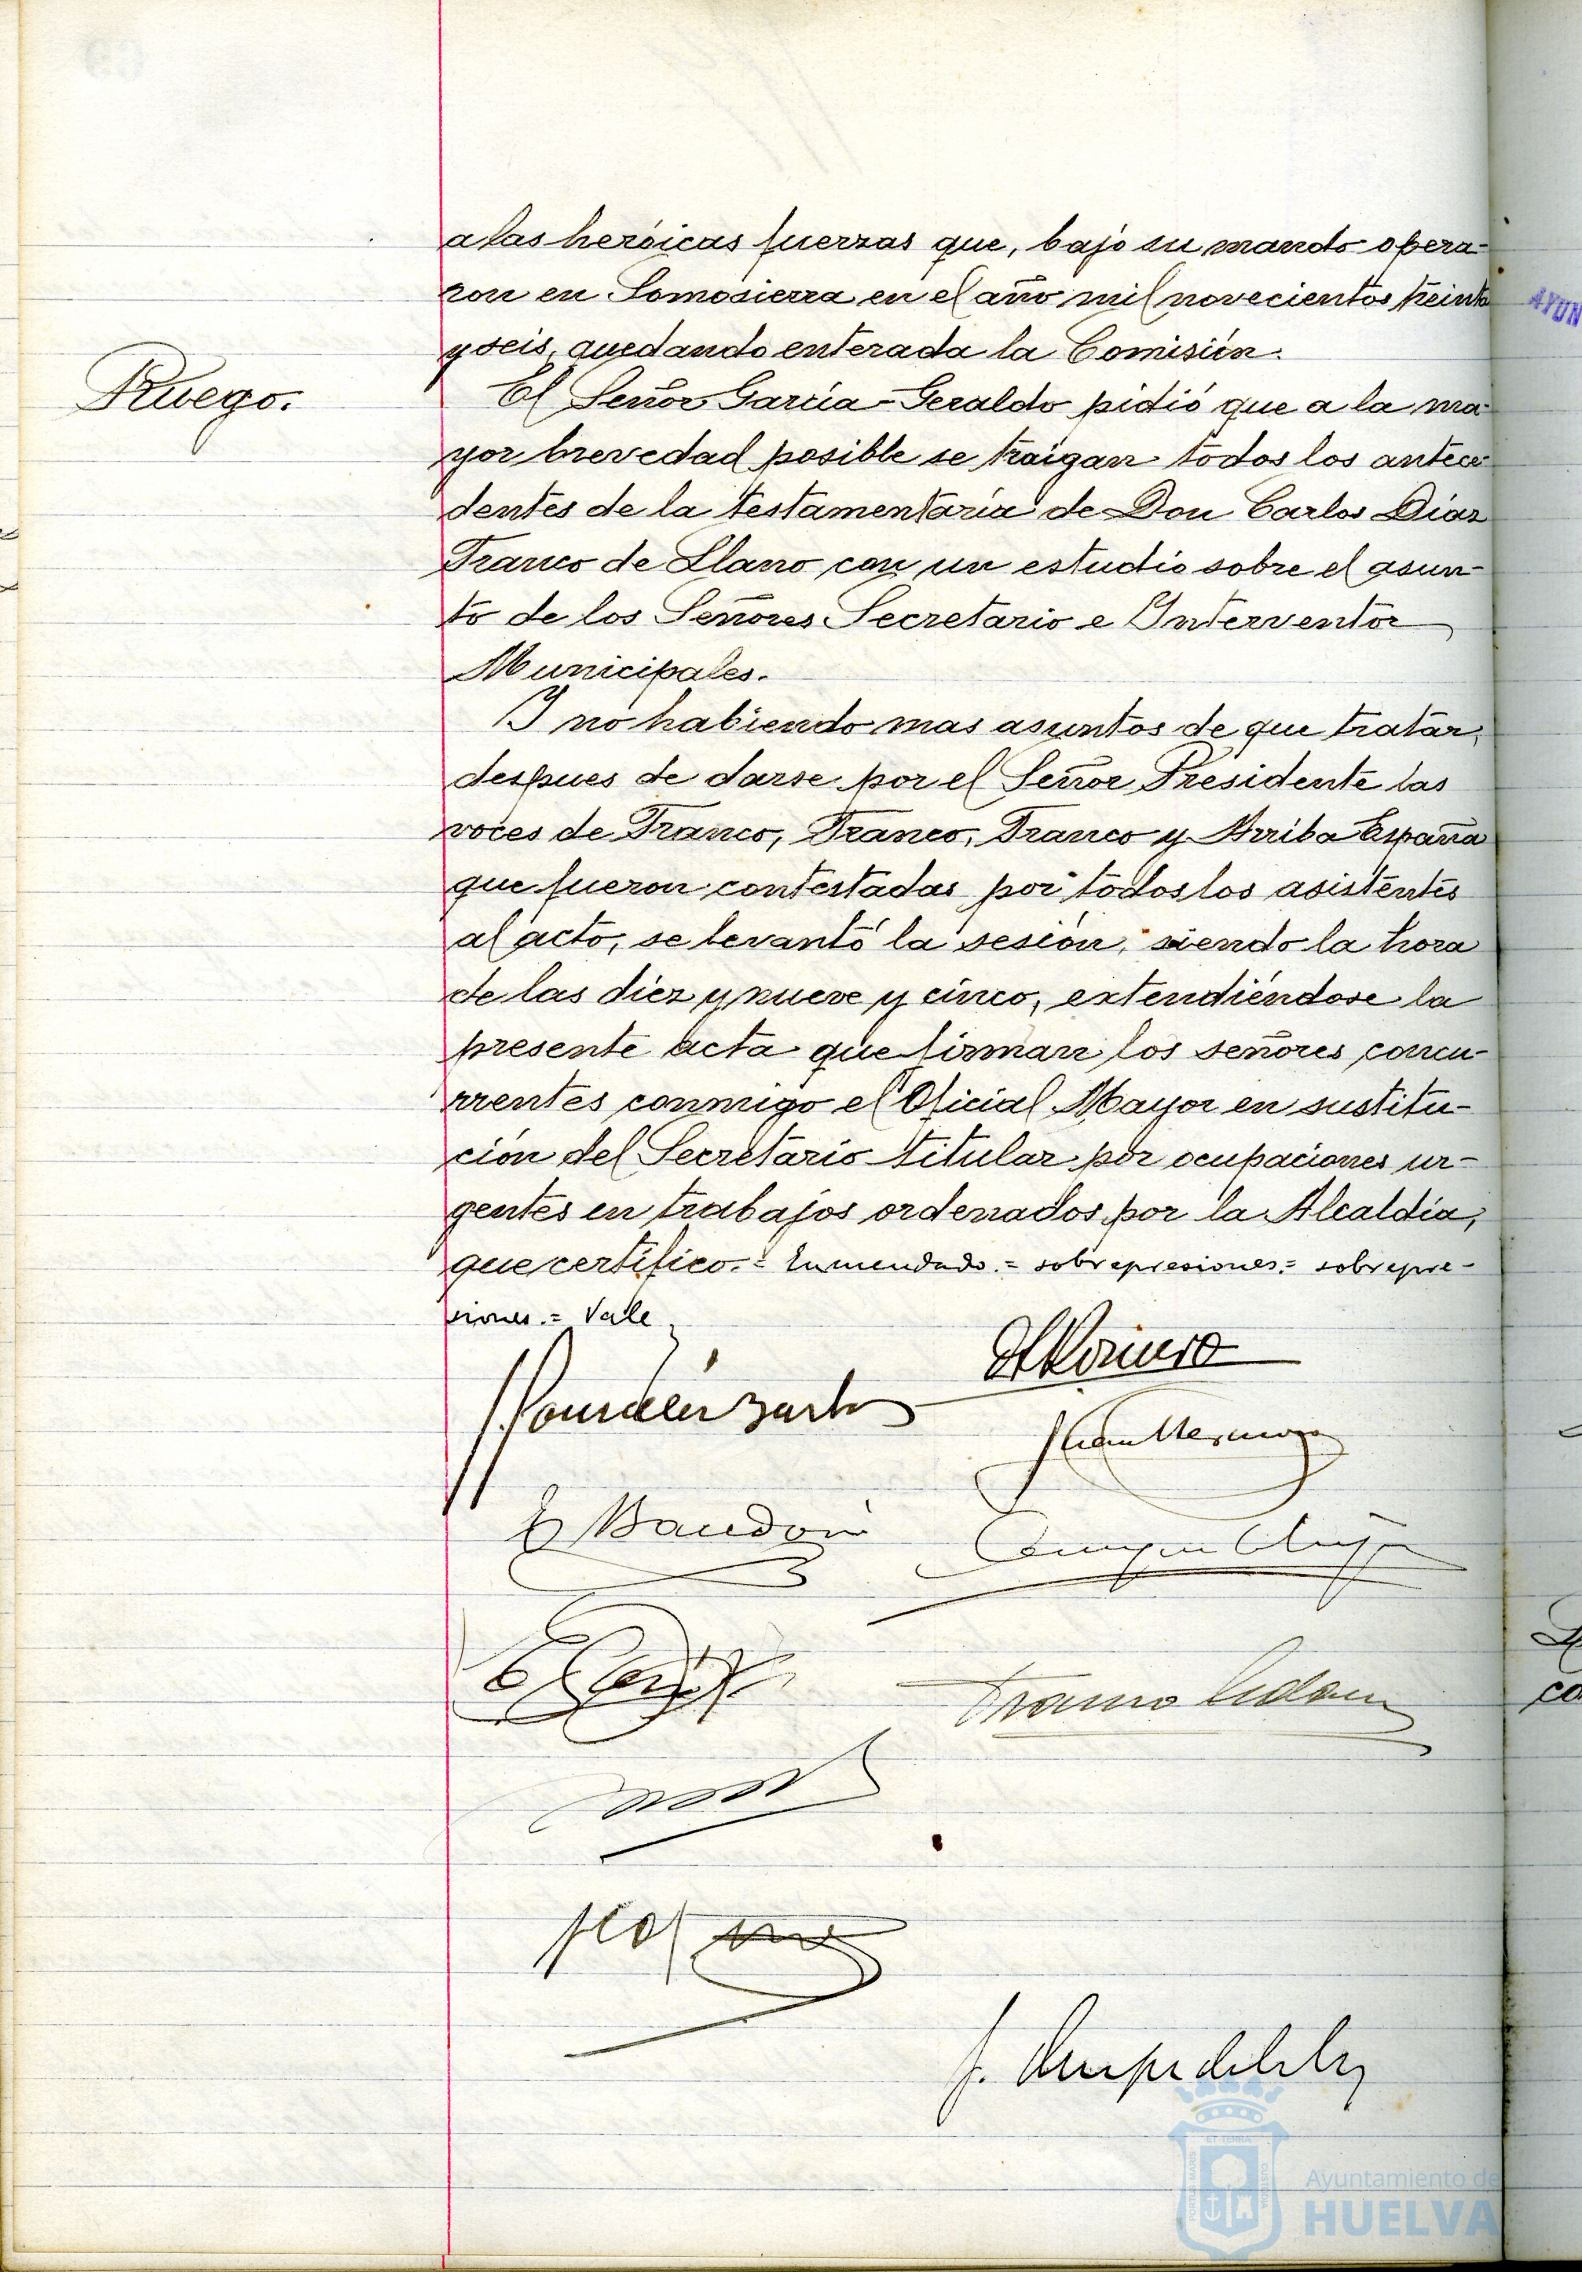 a las heróicas fuerzas que, bajo su mando opera-
ron en Somosierra en el año mil novecientos treinta
y seis, quedando enterada la Comisión.
Ruego.
El Señor García-Geraldo pidió que a la ma-
yor brevedad posible se traigan todos los antece-
dentes de la testamentaría de Don Carlos Díaz
Franco de Llano con un estudio sobre el asun-
to de los Señores Secretario e Interventor
Municipales.
Y no habiendo mas asuntos de que tratar,
despues de darse por el Señor Presidente las
voces de Franco, Franco, Franco y Arriba España
que fueron contestadas por todos los asistentes
al acto, se levantó la sesión, siendo la hora
de las diez y nueve y cinco, extendiéndose la
presente acta que firman los señores concu-
rrentes conmigo el Oficial Mayor en sustitu-
ción del Secretario titular por ocupaciones ur-
gentes en trabajos ordenados por la Alcaldía,
que certifico.= Enmendado.= sobrepresiones.= sobrepre-
siones.= Vale
AYUN
E Baudoin
PORTUS MARIS
ET TERRA
CUSTODIA
Ayuntamiento de
HUELVA